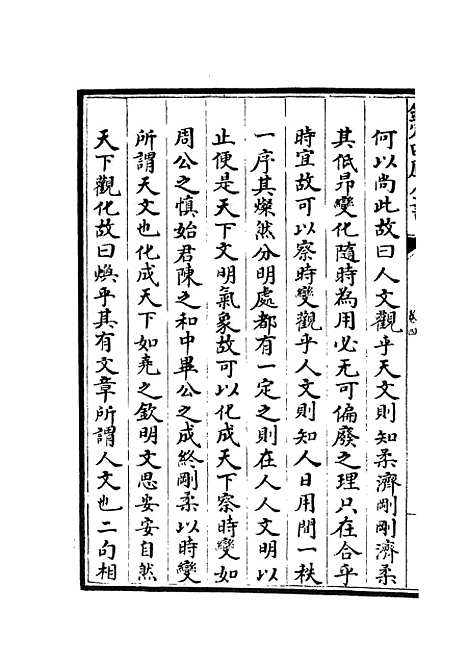 何以尚此故曰人文觀乎天文則知柔濟剛剛濟柔
其低昻變化隨時為用必无可偏廢之理只在合乎
時宜故可以察時變觀乎人文則知人日用間一秩
一序其燦然分明處都有一定之則在人人文明以
止便是天下文明氣象故可以化成天下察時變如
周公之慎始君陳之和中畢公之成終剛柔以時變
所謂天文也化成天下如堯之欽明文思安安自然
天下觀化故曰煥乎其有文章所謂人文也二句相